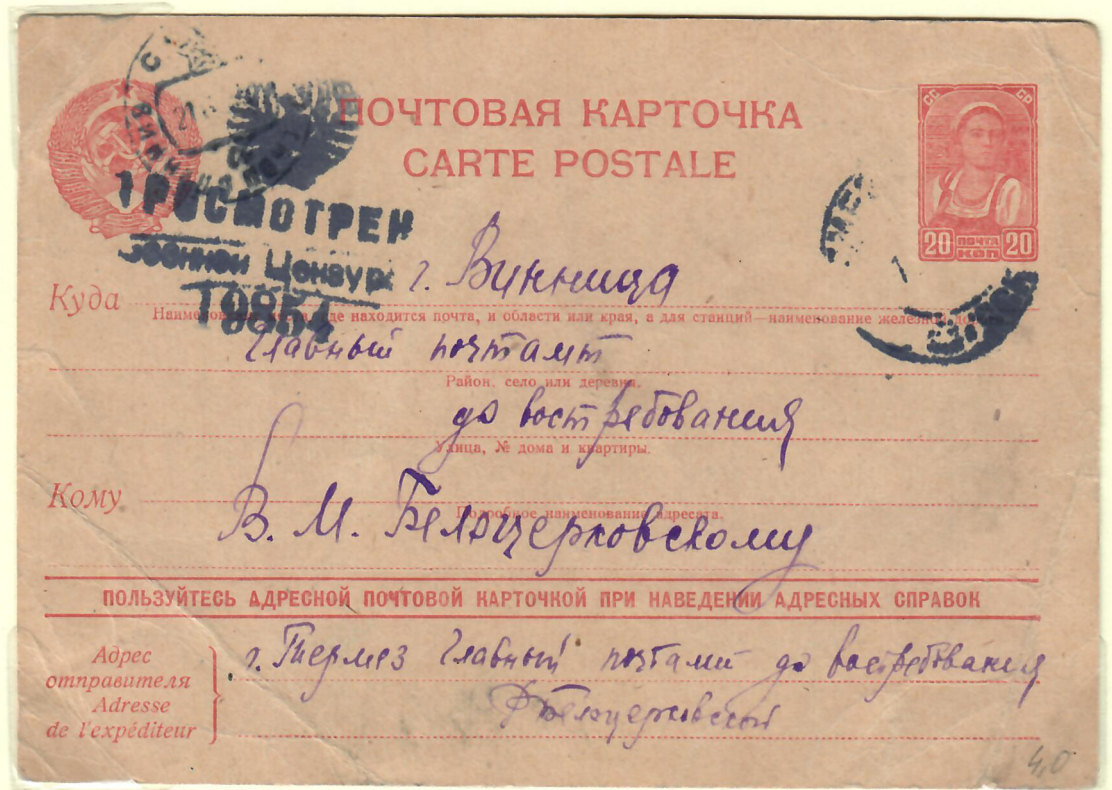 ПОЧТОВАЯ КАРТОЧКА
CARTE POSTALE
СС СР
20 ПОЧТА КОП 20
ВИННИЦА
21
ПРОСМОТРЕН
Военной Цензур
10854
Куда г. Винница
Наименование места, где находится почта, и области или края, а для станций—наименование железной дор
Главный почтамт
Район, село или деревня.
до востребования
Улица, № дома и квартиры.
Кому
Подробное наименование адресата.
В. М. Белоцерковскому
ПОЛЬЗУЙТЕСЬ АДРЕСНОЙ ПОЧТОВОЙ КАРТОЧКОЙ ПРИ НАВЕДЕНИИ АДРЕСНЫХ СПРАВОК
Адрес отправителя
Adresse de l'expéditeur
г. Термез Главный почтамт до востребования
Белоцерковский
4,0